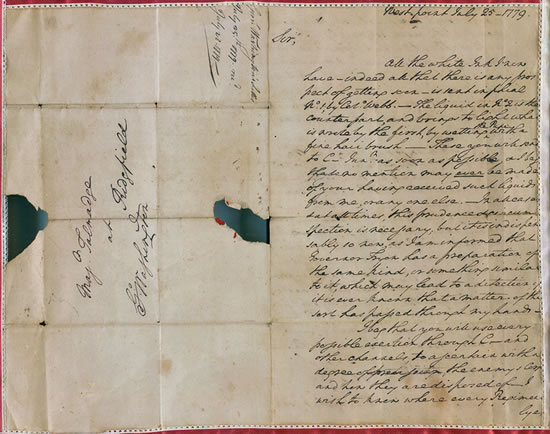 West point July 25 – 1779.
Sir,
All the white Ink I now
have – indeed all that there is any pros
pect of getting soon – is sent in phial
No 1 by Col. Webb. – The liquid in No 2 is the
counterpart, and brings to light what
is wrote by the first, by wetting the paper with a
fine hair brush – These you will send
to C– Junr as soon as possible, & I beg
that no mention may ever be made
of your having received such liquids
from me, or any one else. – In all cases
and at all times, this prudence & circum
spection is necessary, but it is indispen
sably so now, as I am informed that
Governor Tryon has a preparation of
the same kind, or something similar
to it, which may lead to a detection if
it is ever known that a matter of this
sort has passed through my hands –
I beg that you will use every
possible exertion through C– and
other channels, to ascertain with a
degree of precision the enemy's
and how they are disposed of – I
wish to know where every Regiment
lyes
Majr Talmadge
at
Ridgefield
G Washington